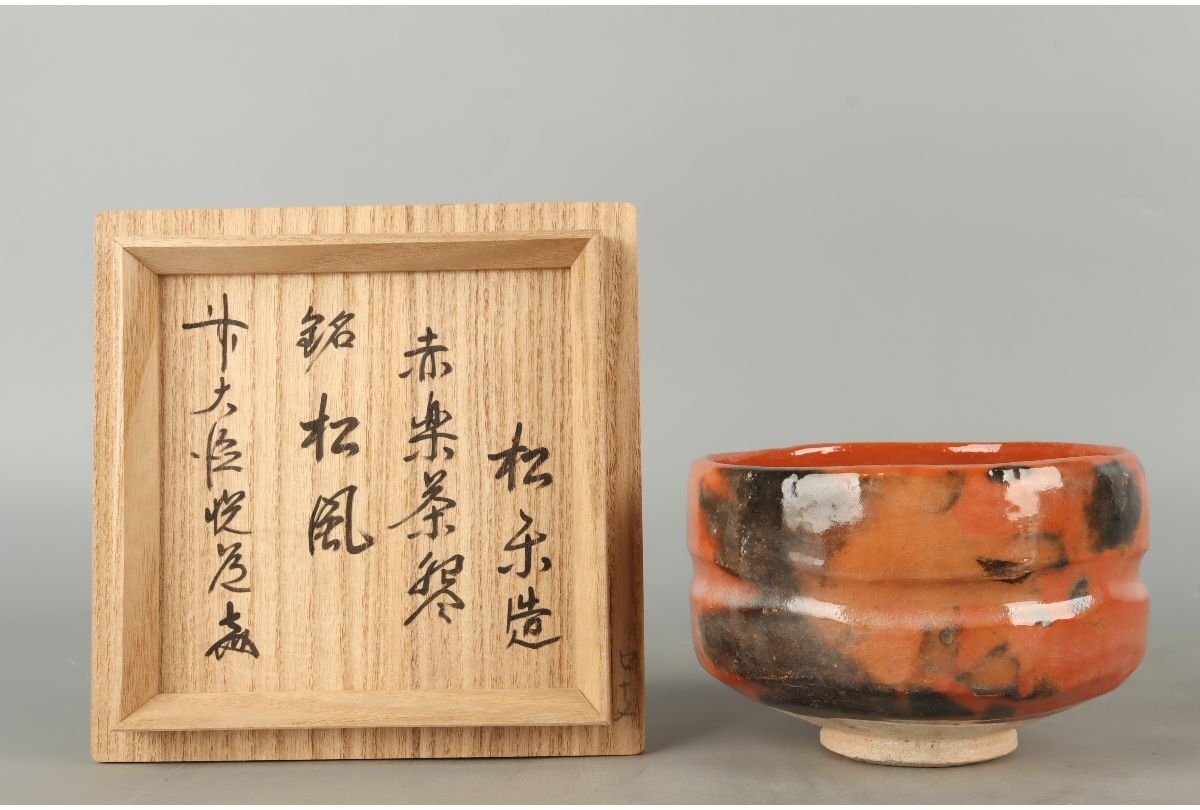 松楽造
赤楽茶碗
銘 松風
前大徳悦道 (花押)